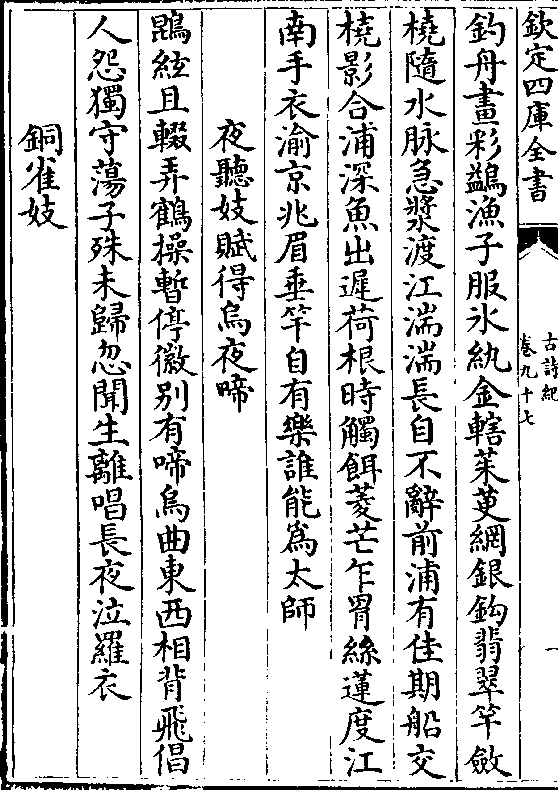 欽定四庫全書
古詩紀
卷九十七
一
釣舟畫彩鷁漁子服氷紈金轄茱萸網銀鈎翡翠竿斂
橈隨水脉急槳渡江湍湍長自不辭前浦有佳期船交
橈影合浦深魚出遲荷根時觸餌菱芒乍罥絲蓮度江
南手衣渝京兆眉垂竿自有樂誰能為太師
夜聽妓賦得烏夜啼
鵾絃且輟弄鶴操暫停徽别有啼烏曲東西相背飛倡
人怨獨守蕩子殊未歸忽聞生離唱長夜泣羅衣
銅雀妓